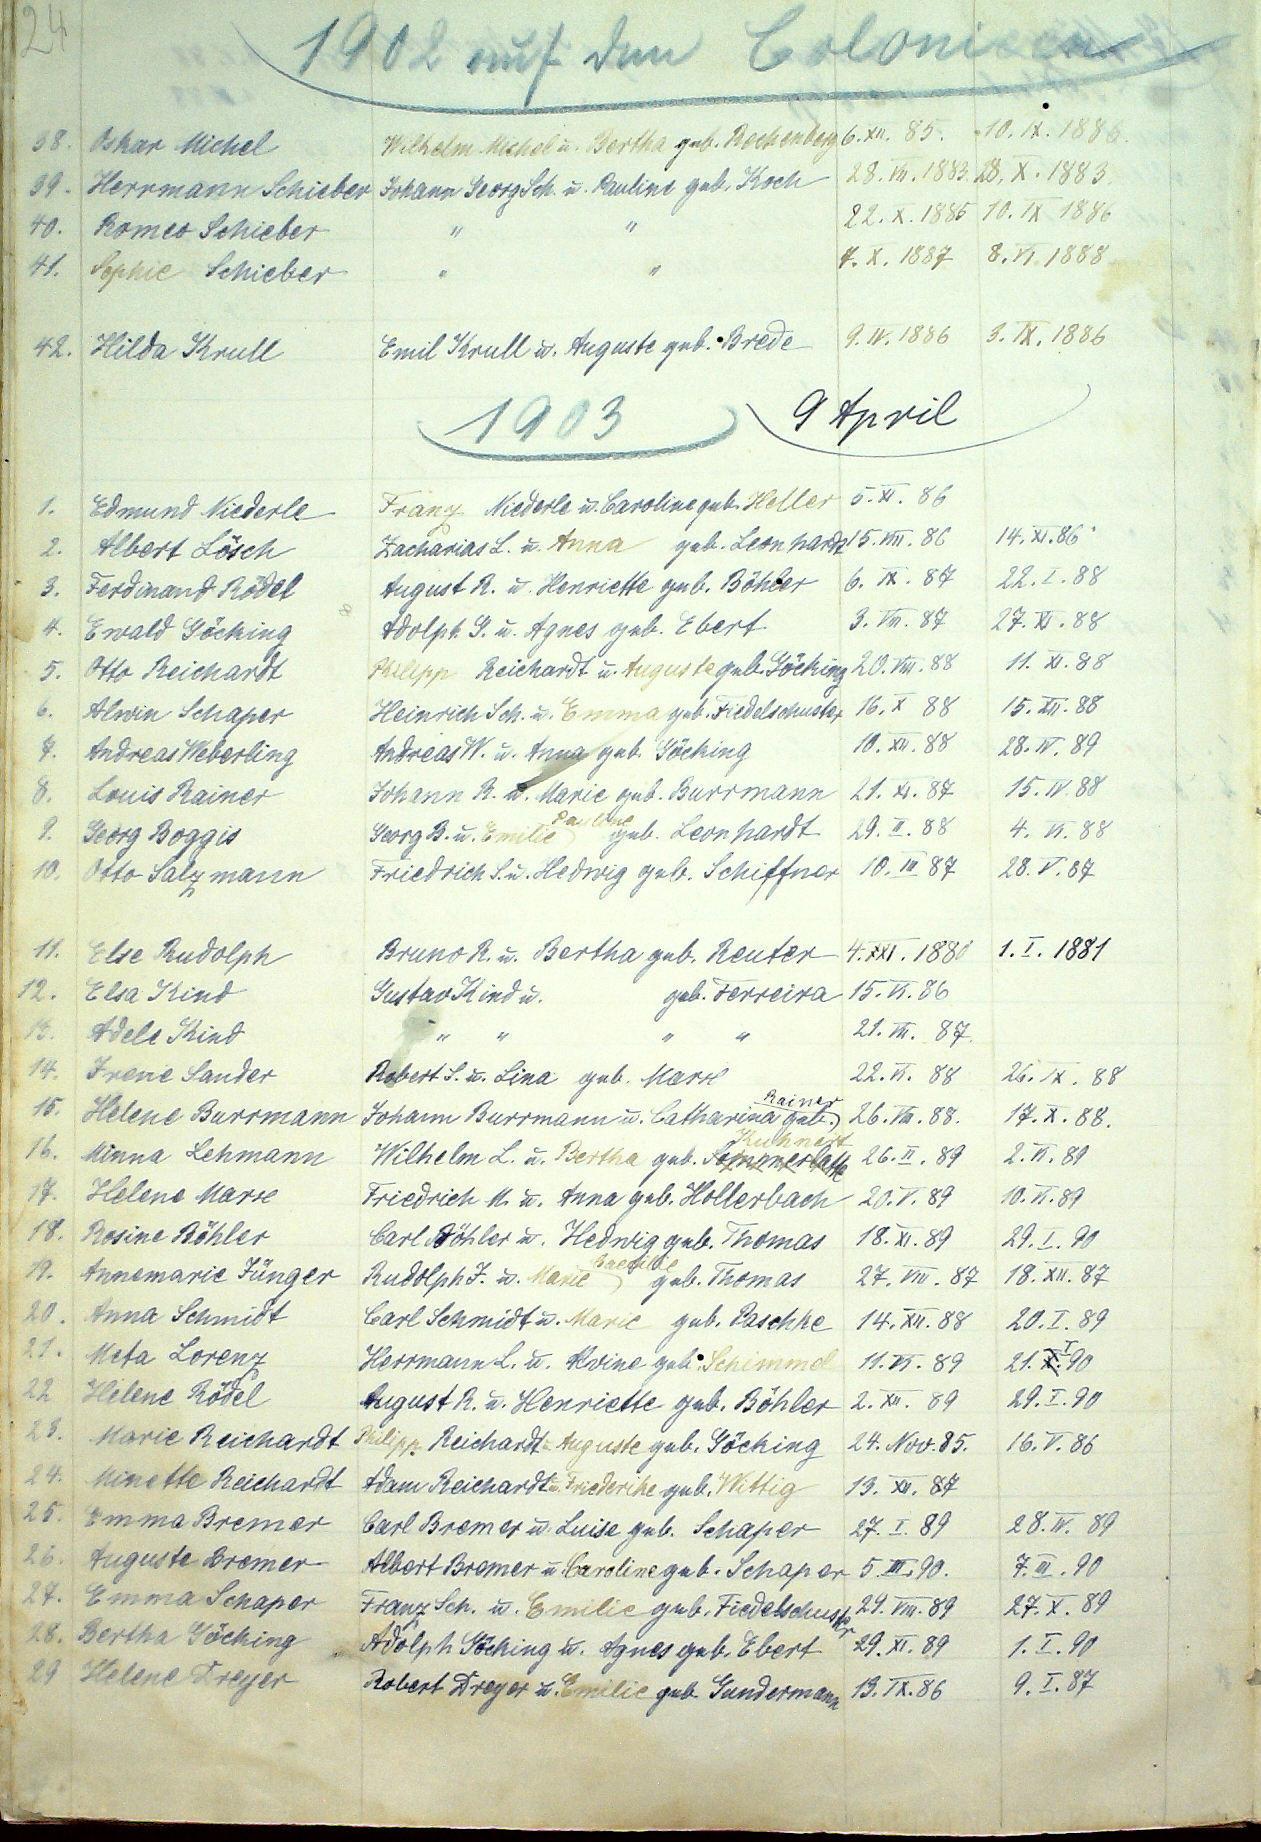 24
1902 auf den Colonieen
38. Oskar Michel Wilhelm Michel u. Bertha geb. Rechenberg 6. XII. 85. 10. IX. 1886.
39. Herrmann Schieber Johann Georg Sch. u. Pauline geb. Koch 28. VII. 1883. 28. X. 1883.
40. Romeo Schieber " " 22. X. 1885 10. IX 1886
41. Sophie Schieber " " 7. X. 1887 8. VI. 1888
42. Hilda Krull Emil Krull u. Auguste geb. Brede 9. IV. 1886 3. IX. 1886
1903 9 April
1. Edmund Niederle Franz Niederle u. Caroline geb. Heller 5. XI. 86
2. Albert Lösch Zacharias L. u. Anna geb. Leonhardt 15. VIII. 86 14. XI. 86
3. Ferdinand Rödel August R. u. Henriette geb. Böhler 6. IX. 87 22. I. 88
4. Ewald Göcking Adolph G. u. Agnes geb. Ebert 3. VII. 87 27. XI. 88
5. Otto Reichardt Philipp Reichardt u. Auguste geb. Göcking 20. VIII. 88 11. XI. 88
6. Alwin Schaper Heinrich Sch. u. Emma geb. Fiedelschuster 16. X 88 15. XII. 88
7. Andreas Weberling Andreas W. u. Anna geb. Göcking 10. XII. 88 28. IV. 89
8. Louis Rainer Johann R. u. Marie geb. Burrmann 21. XI. 87 15. IV. 88
9. Georg Boggis Georg B. u. Emilie Pauline geb. Leonhardt 29. II. 88 4. VI. 88
10. Otto Salzmann Friedrich S. u. Hedwig geb. Schiffner 10. III 87 28. V. 87
11. Else Rudolph Bruno R. u. Bertha geb. Reuter 4. XI. 1880 1. I. 1881
12. Elsa Kind Gustav Kind u. geb. Ferreira 15. VI. 86
13. Adele Kind " " " " 21. VII. 87.
14. Irene Sander Robert S. u. Lina geb. Marx 22. VI. 88 26. IX. 88
Rainer
15. Helene Burrmann Johann Burrmann u. Catharina geb. 26. VII. 88. 17. X. 88.
Kuhnert
16. Minna Lehmann Wilhelm L. u. Bertha geb. Sommerlatte 26. II. 89 2. VI. 89
17. Helene Marx Friedrich M. u. Anna geb. Hollerbach 20. V. 89 10. VI. 89
18. Rosine Böhler Carl Böhler u. Hedwig geb. Thomas 18. XI. 89 29. I. 90
19. Annemarie Jünger Rudolph J. u. Marie geb. Thomas 27. VIII. 87 18. XII. 87
20. Anna Schmidt Carl Schmidt u. Marie geb. Paschke 14. XII. 88 20. I. 89
21. Meta Lorenz Herrmann L. u. Alvine geb. Schimmel 11. VI. 89 21. I. 90
22 Helene Rödel August R. u. Henriette geb. Böhler 2. XII. 89 29. I. 90
23. Marie Reichardt Philipp Reichardt u. Auguste geb. Göcking 24. Nov. 85. 16. V. 86
24. Minette Reichardt Adam Reichardt u. Friederike geb. Wittig 13. XII. 87
25. Emma Bremer Carl Bremer u. Luise geb. Schaper 27. I. 89 28. IV. 89
26. Auguste Bremer Albert Bremer u. Caroline geb. Schaper 5. III. 90. 7. III. 90
27. Emma Schaper Franz Sch. u. Emilie geb. Fiedelschuster 29. VIII. 89 27. X. 89
28. Bertha Göcking Adolph Göcking u. Agnes geb. Ebert 29. XI. 89 1. I. 90
29 Helene Dreyer Robert Dreyer u. Emilie geb. Gundermann 13. IX. 86 9. I. 87